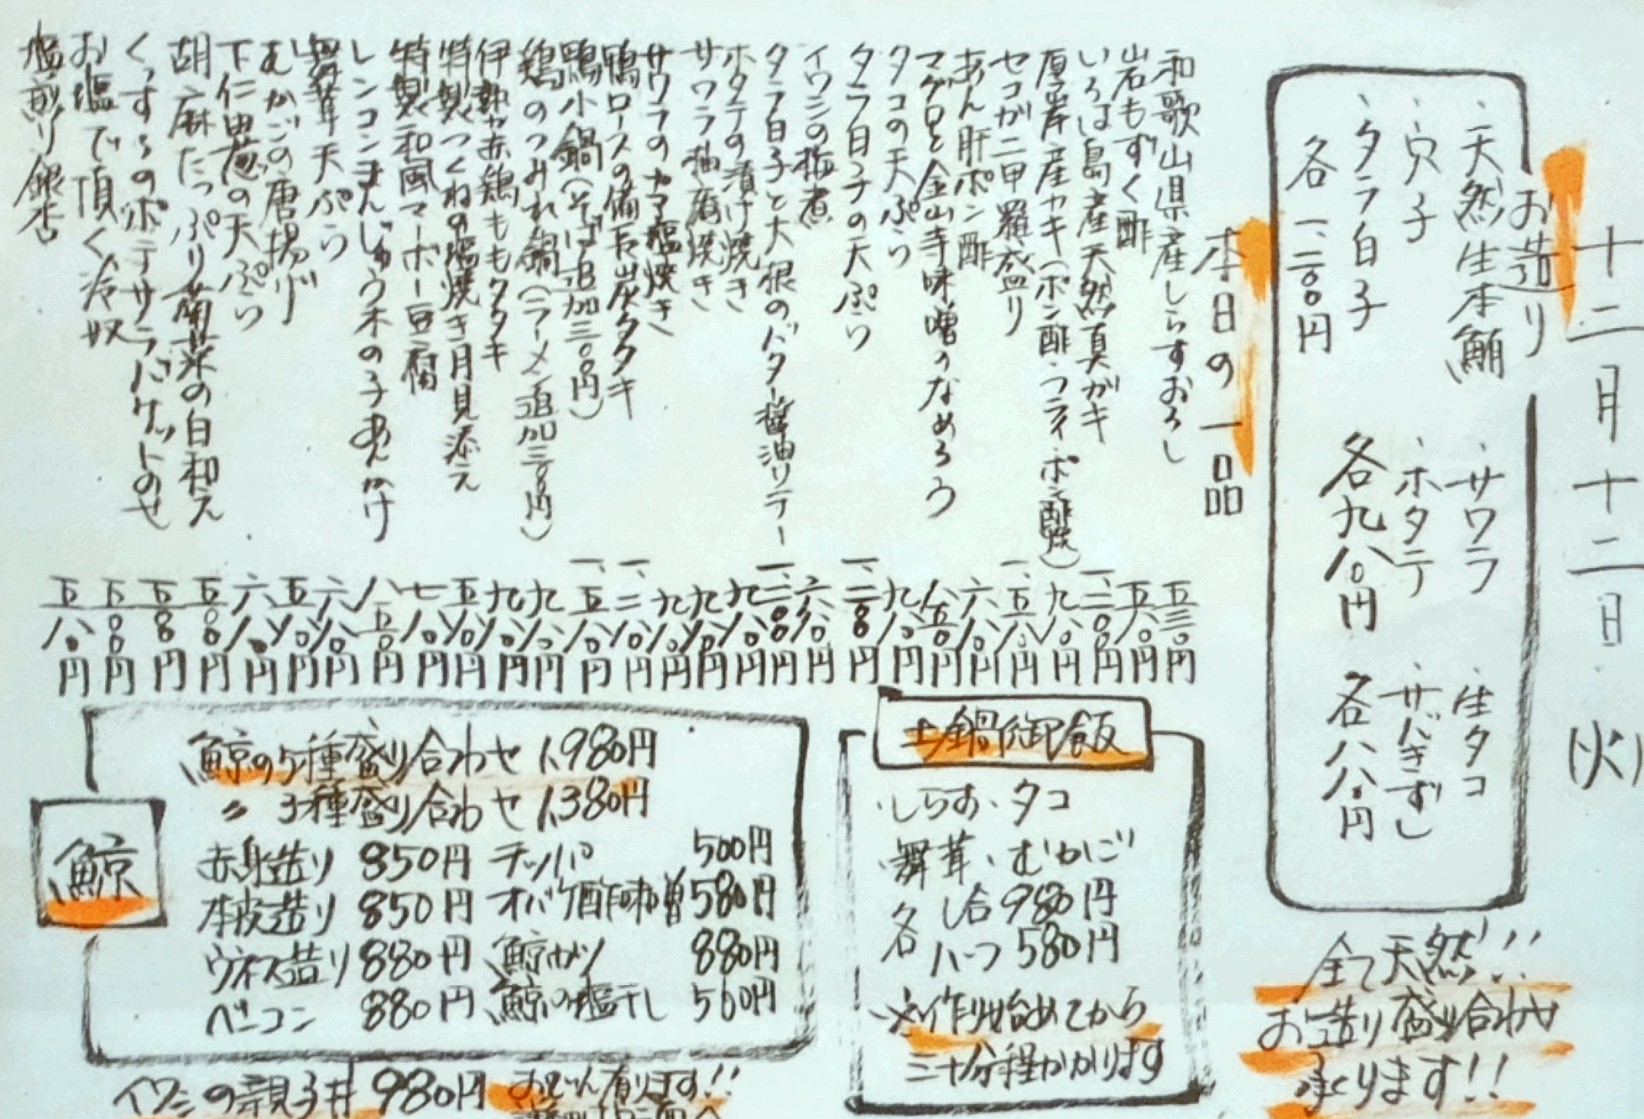 十二月十二日(火)
お造り
・天然生本鮪
・サワラ
・生タコ
・穴子
・ホタテ
・サバきずし
・タラ白子
各九八〇円
各八八〇円
各一、二〇〇円
全て天然!!
お造り盛り合わせ
承ります!!
本日の一品
和歌山県産しらすおろし 五三〇円
岩もずく酢 五八〇円
いろは島産天然真ガキ 一、二〇〇円
厚岸産カキ(ポン酢・フライ・ポン酢焼) 九八〇円
セコガニ甲羅盛り 一、五八〇円
あん肝ポン酢 六八〇円
マグロと金山寺味噌のなめろう 八五〇円
タコの天ぷら 九八〇円
タラ白子の天ぷら 一、二〇〇円
イワシの塩煮 六八〇円
タラ白子と大根のバター醤油ソテー 一、二〇〇円
ホタテの漬け焼き 九八〇円
サワラ柚庵焼き 九八〇円
サワラのカマ塩焼き 九八〇円
鴨ロースの備長炭タタキ 一、二八〇円
鴨小鍋(そば追加三〇〇円) 一、五八〇円
鶏のつみれ鍋(ラーメン追加三〇〇円) 九八〇円
伊勢赤鶏ももタタキ 九八〇円
特製つくねの塩焼き月見添え 五八〇円
特製和風マーボー豆腐 七八〇円
レンコンまんじゅう木の子あんかけ 八五〇円
舞茸天ぷら 六八〇円
むかごの唐揚げ 五八〇円
下仁田葱の天ぷら 六八〇円
胡麻たっぷり菊菜の白和え 五五〇円
くんすらのポテサラバケットのせ 五五〇円
お塩で頂く冷奴 五〇〇円
塩煎り銀杏 五八〇円
土鍋御飯
・しらす、タコ
・舞茸、むかご
各 一合 980円
ハーフ 580円
※作り始めてから
三十分程かかります
鯨
鯨の5種盛り合わせ 1,980円
〃 3種盛り合わせ 1,380円
赤身造り 850円 テッパ 500円
本皮造り 850円 オバケ酢味噌 580円
ウネス造り 880円 鯨カツ 880円
ベーコン 880円 鯨の塩干し 560円
イワシの親子丼 980円 おでん有ります!!